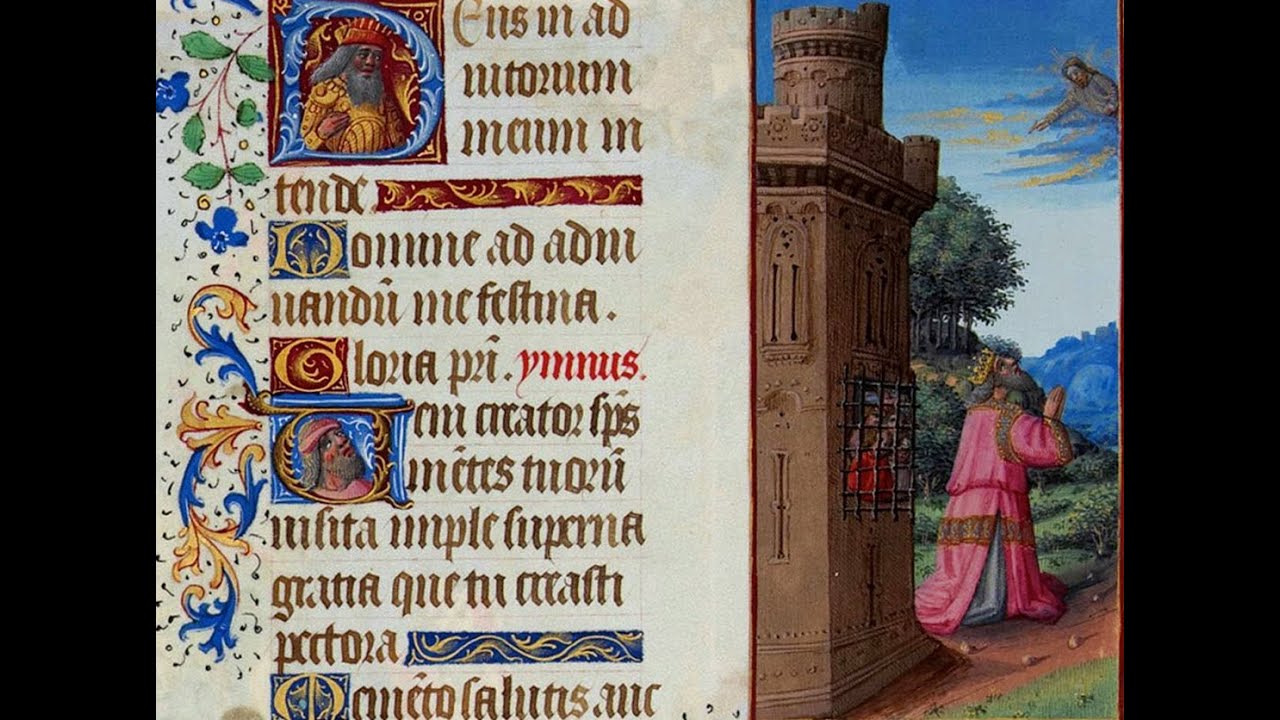 Deus in ad
iutorium
meum in
tende.
Domine ad adiu
uandū me festina.
Gloria pr̄i. ymnus.
Ueni creator sp̄s
mētes tuorū
uisita imple superna
gratia que tu creasti
pectora
Memēto salutis auc